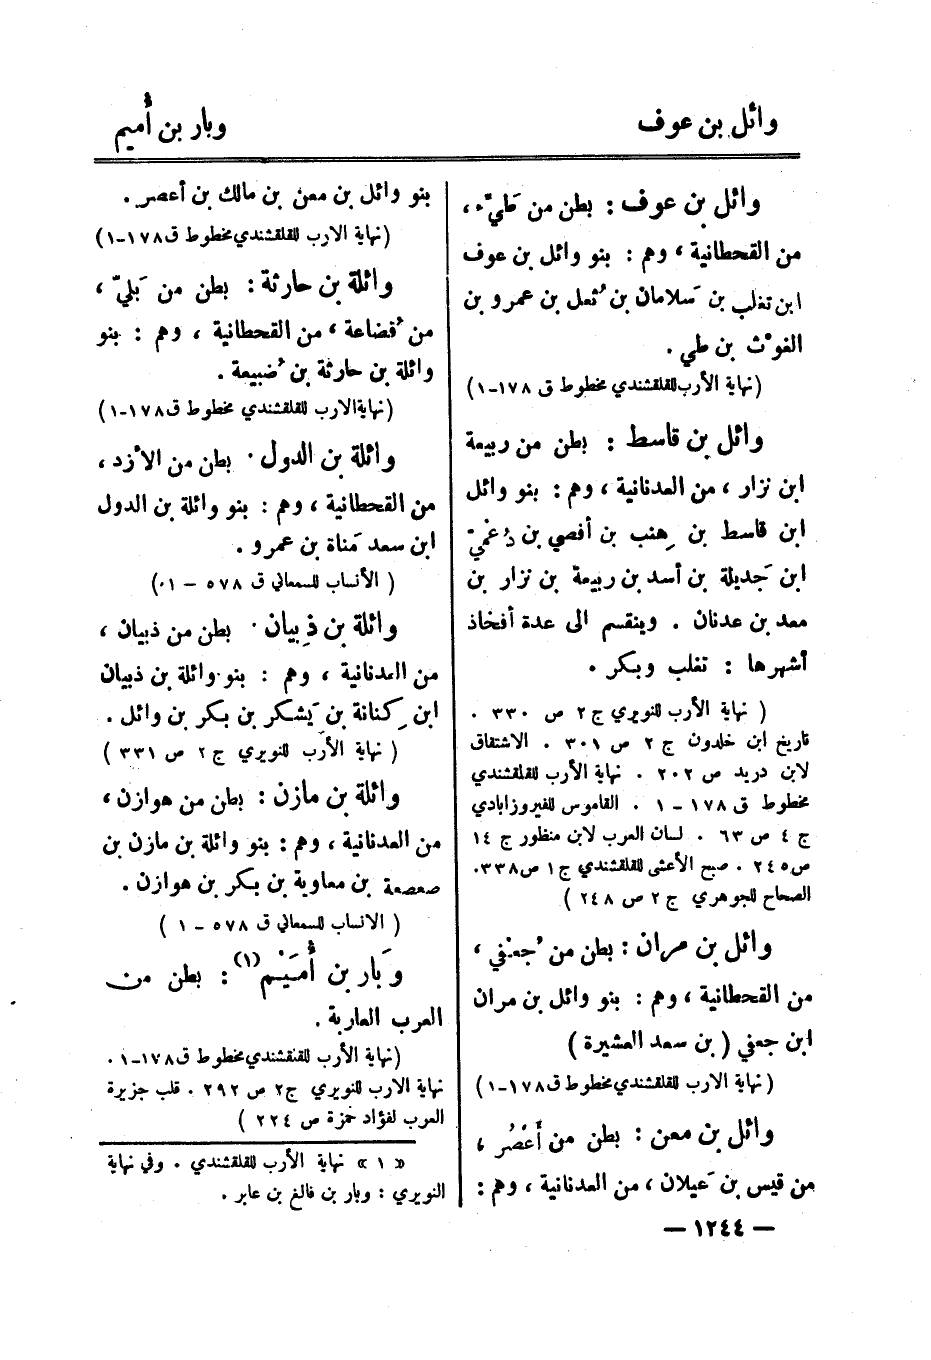 وائل بن عوف
وبار بن أُميم
وائل بن عوف : بطن من طيّء ،
من القحطانية ، وهم : بنو وائل بن عوف
ابن تغلب بن سَلامان بن ثُعل بن عمرو بن
الغوْث بن طي .
(نهاية الأرب للقلقشندي مخطوط ق ١٧٨-١)
وائل بن قاسط : بطن من ربيعة
ابن نزار ، من العدنانية ، وهم : بنو وائل
ابن قاسط بن هِنب بن أفصى بن دُعْميّ
ابن جَديلة بن أسد بن ربيعة بن نزار بن
معد بن عدنان . وينقسم الى عدة أفخاذ
أشهرها : تغلب وبكر .
( نهاية الأرب للنويري ج ٢ ص ٣٣٠ .
تاريخ ابن خلدون ج ٢ ص ٣٠١ . الاشتقاق
لابن دريد ص ٢٠٢ . نهاية الأرب للقلقشندي
مخطوط ق ١٧٨ - ١ . القاموس للفيروزابادي
ج ٤ ص ٦٣ . لسان العرب لابن منظور ج ١٤
ص ٢٤٥ . صبح الأعشى للقلقشندي ج ١ ص ٣٣٨.
الصحاح للجوهري ج ٢ ص ٢٤٨ )
وائل بن مران : بطن من جُعفي ،
من القحطانية ، وهم : بنو وائل بن مران
ابن جعفي ( بن سعد العشيرة )
(نهاية الارب للقلقشندي مخطوط ق ١٧٨-١)
وائل بن معن : بطن من أَعْصُر ،
من قيس بن عَيلان ، من العدنانية ، وهم :
بنو وائل بن معن بن مالك بن أعصر .
(نهاية الارب للقلقشندي مخطوط ق ١٧٨-١)
وائلة بن حارثة : بطن من بَليّ ،
من قُضاعة ، من القحطانية ، وهم : بنو
وائلة بن حارثة بن ضُبيعة .
(نهاية الارب للقلقشندي مخطوط ق ١٧٨-١)
وائلة بن الدول . بطن من الأزد ،
من القحطانية ، وهم : بنو وائلة بن الدول
ابن سعد مَناة بن عمرو .
( الأنساب للسمعاني ق ٥٧٨ - ١.)
وائلة بن ذِبيان . بطن من ذبيان ،
من العدنانية ، وهم : بنو وائلة بن ذبيان
ابن كِنانة بن يَشكر بن بكر بن وائل .
( نهاية الأرب للنويري ج ٢ ص ٣٣١ )
وائلة بن مازن : بطن من هوازن ،
من العدنانية ، وهم : بنو وائلة بن مازن بن
صعصعة بن معاوية بن بكر بن هوازن .
( الانساب للسمعاني ق ٥٧٨ - ١ )
وَبار بن أُمَيْم (١) : بطن من
العرب العاربة .
(نهاية الأرب للقلقشندي مخطوط ق ١٧٨-١ .
نهاية الارب للنويري ج ٢ ص ٢٩٢ . قلب جزيرة
العرب لفؤاد حمزة ص ٢٢٤ )
« ١ » نهاية الأرب للقلقشندي . وفي نهاية
النويري : وبار بن فالغ بن عابر .
— ١٢٤٤ —